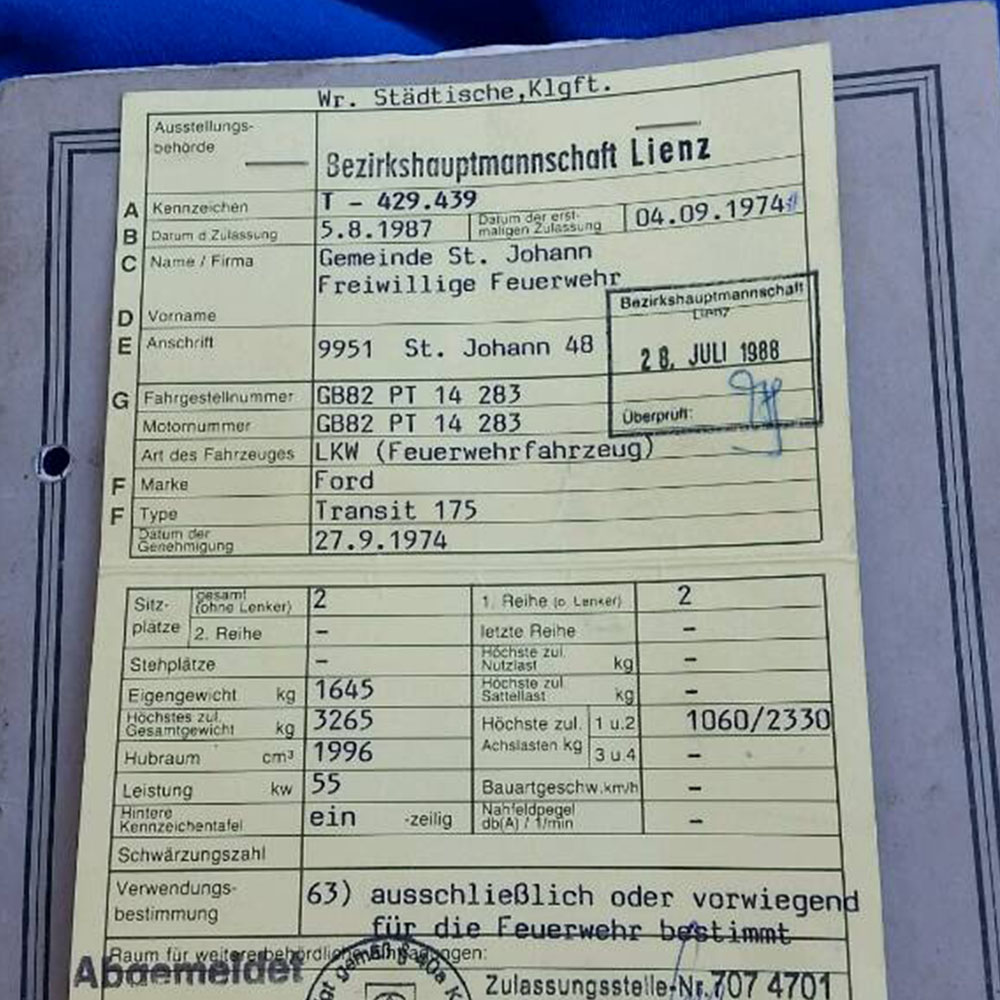 Wr. Städtische,Klgft.
Ausstellungs-
behörde
Bezirkshauptmannschaft Lienz
A Kennzeichen T - 429.439
B Datum d Zulassung 5.8.1987 Datum der erst-
maligen Zulassung 04.09.1974
C Name / Firma Gemeinde St. Johann
Freiwillige Feuerwehr
Bezirkshauptmannschaft
Lienz
D Vorname
E Anschrift 9951 St. Johann 48
28. JULI 1988
Überprüft:
G Fahrgestellnummer GB82 PT 14 283
Motornummer GB82 PT 14 283
Art des Fahrzeuges LKW (Feuerwehrfahrzeug)
F Marke Ford
F Type Transit 175
Datum der
Genehmigung 27.9.1974
Sitz-
plätze
gesamt
(ohne Lenker) 2 1. Reihe (o. Lenker) 2
2. Reihe – letzte Reihe –
Stehplätze – Höchste zul.
Nutzlast kg –
Eigengewicht kg 1645 Höchste zul.
Sattellast kg –
Höchstes zul.
Gesamtgewicht kg 3265 Höchste zul.
Achslasten kg 1 u.2 1060/2330
Hubraum cm³ 1996 3 u.4 –
Leistung kw 55 Bauartgeschw.km/h –
Hintere
Kennzeichentafel ein -zeilig Nahfeldpegel
db(A) / 1/min –
Schwärzungszahl
Verwendungs-
bestimmung
63) ausschließlich oder vorwiegend
für die Feuerwehr bestimmt
Raum für weitere behördliche Eintragungen:
Abgemeldet
gemäß § 40a K
Zulassungsstelle-Nr.707 4701